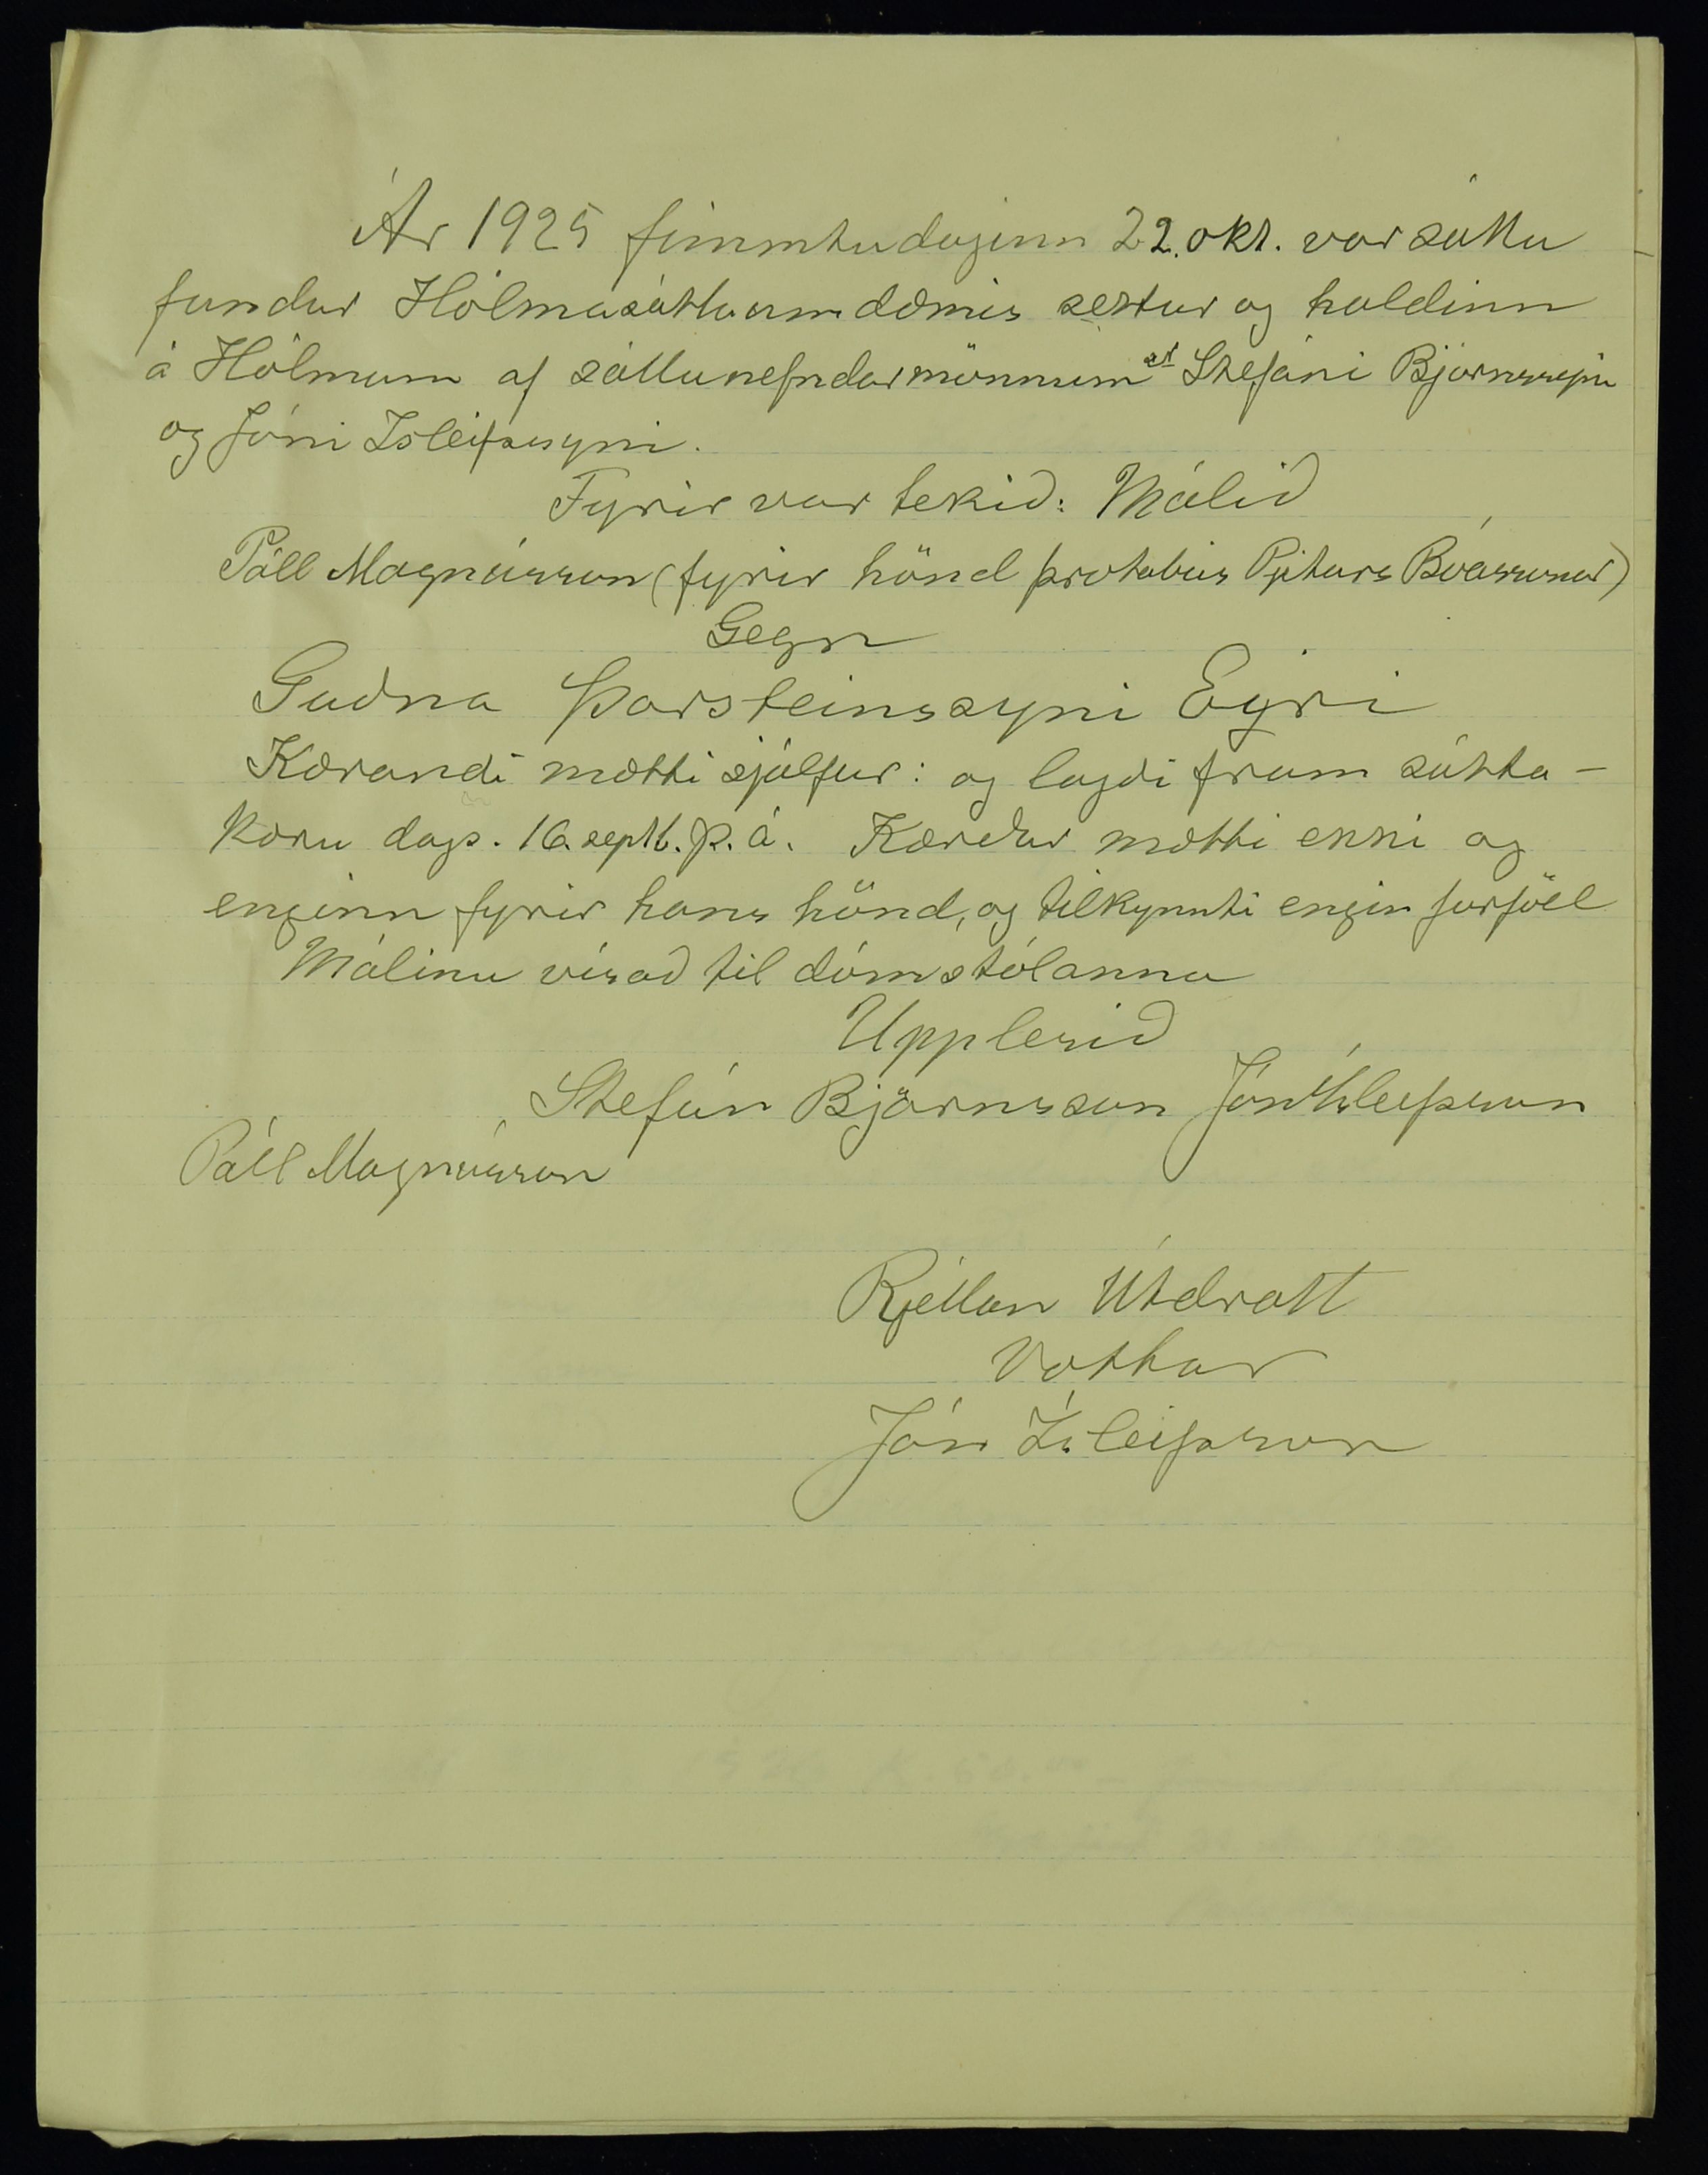 Ár 1925 fimmtudaginn 22. okt. var sátta
fundur Hólmasáttaumdæmis settur og haldinn
á Hólmum af sáttanefndarmönnum Stefáni Björnssyni
og Jóni Isleifssyni.
Fyrir var tekið: Málið
Páll Magnússon (fyrir hönd þrotabús Pjeturs Bóassonar)
Gegn
Guðna Þorsteinssyni Eyri
Kærandi mætti sjálfur: og lagði fram sátta-
kæru dags. 16. septb. þ. á. Kærður mætti ekki og
enginn fyrir hans hönd, og tilkynnti engin forföll
Málinu vísað til dómstólanna
Upplesið
Stefán Björnsson Jón Ísleifsson
Páll Magnússon
Rjettan Útdrátt
Vottar
Jón Ísleifsson